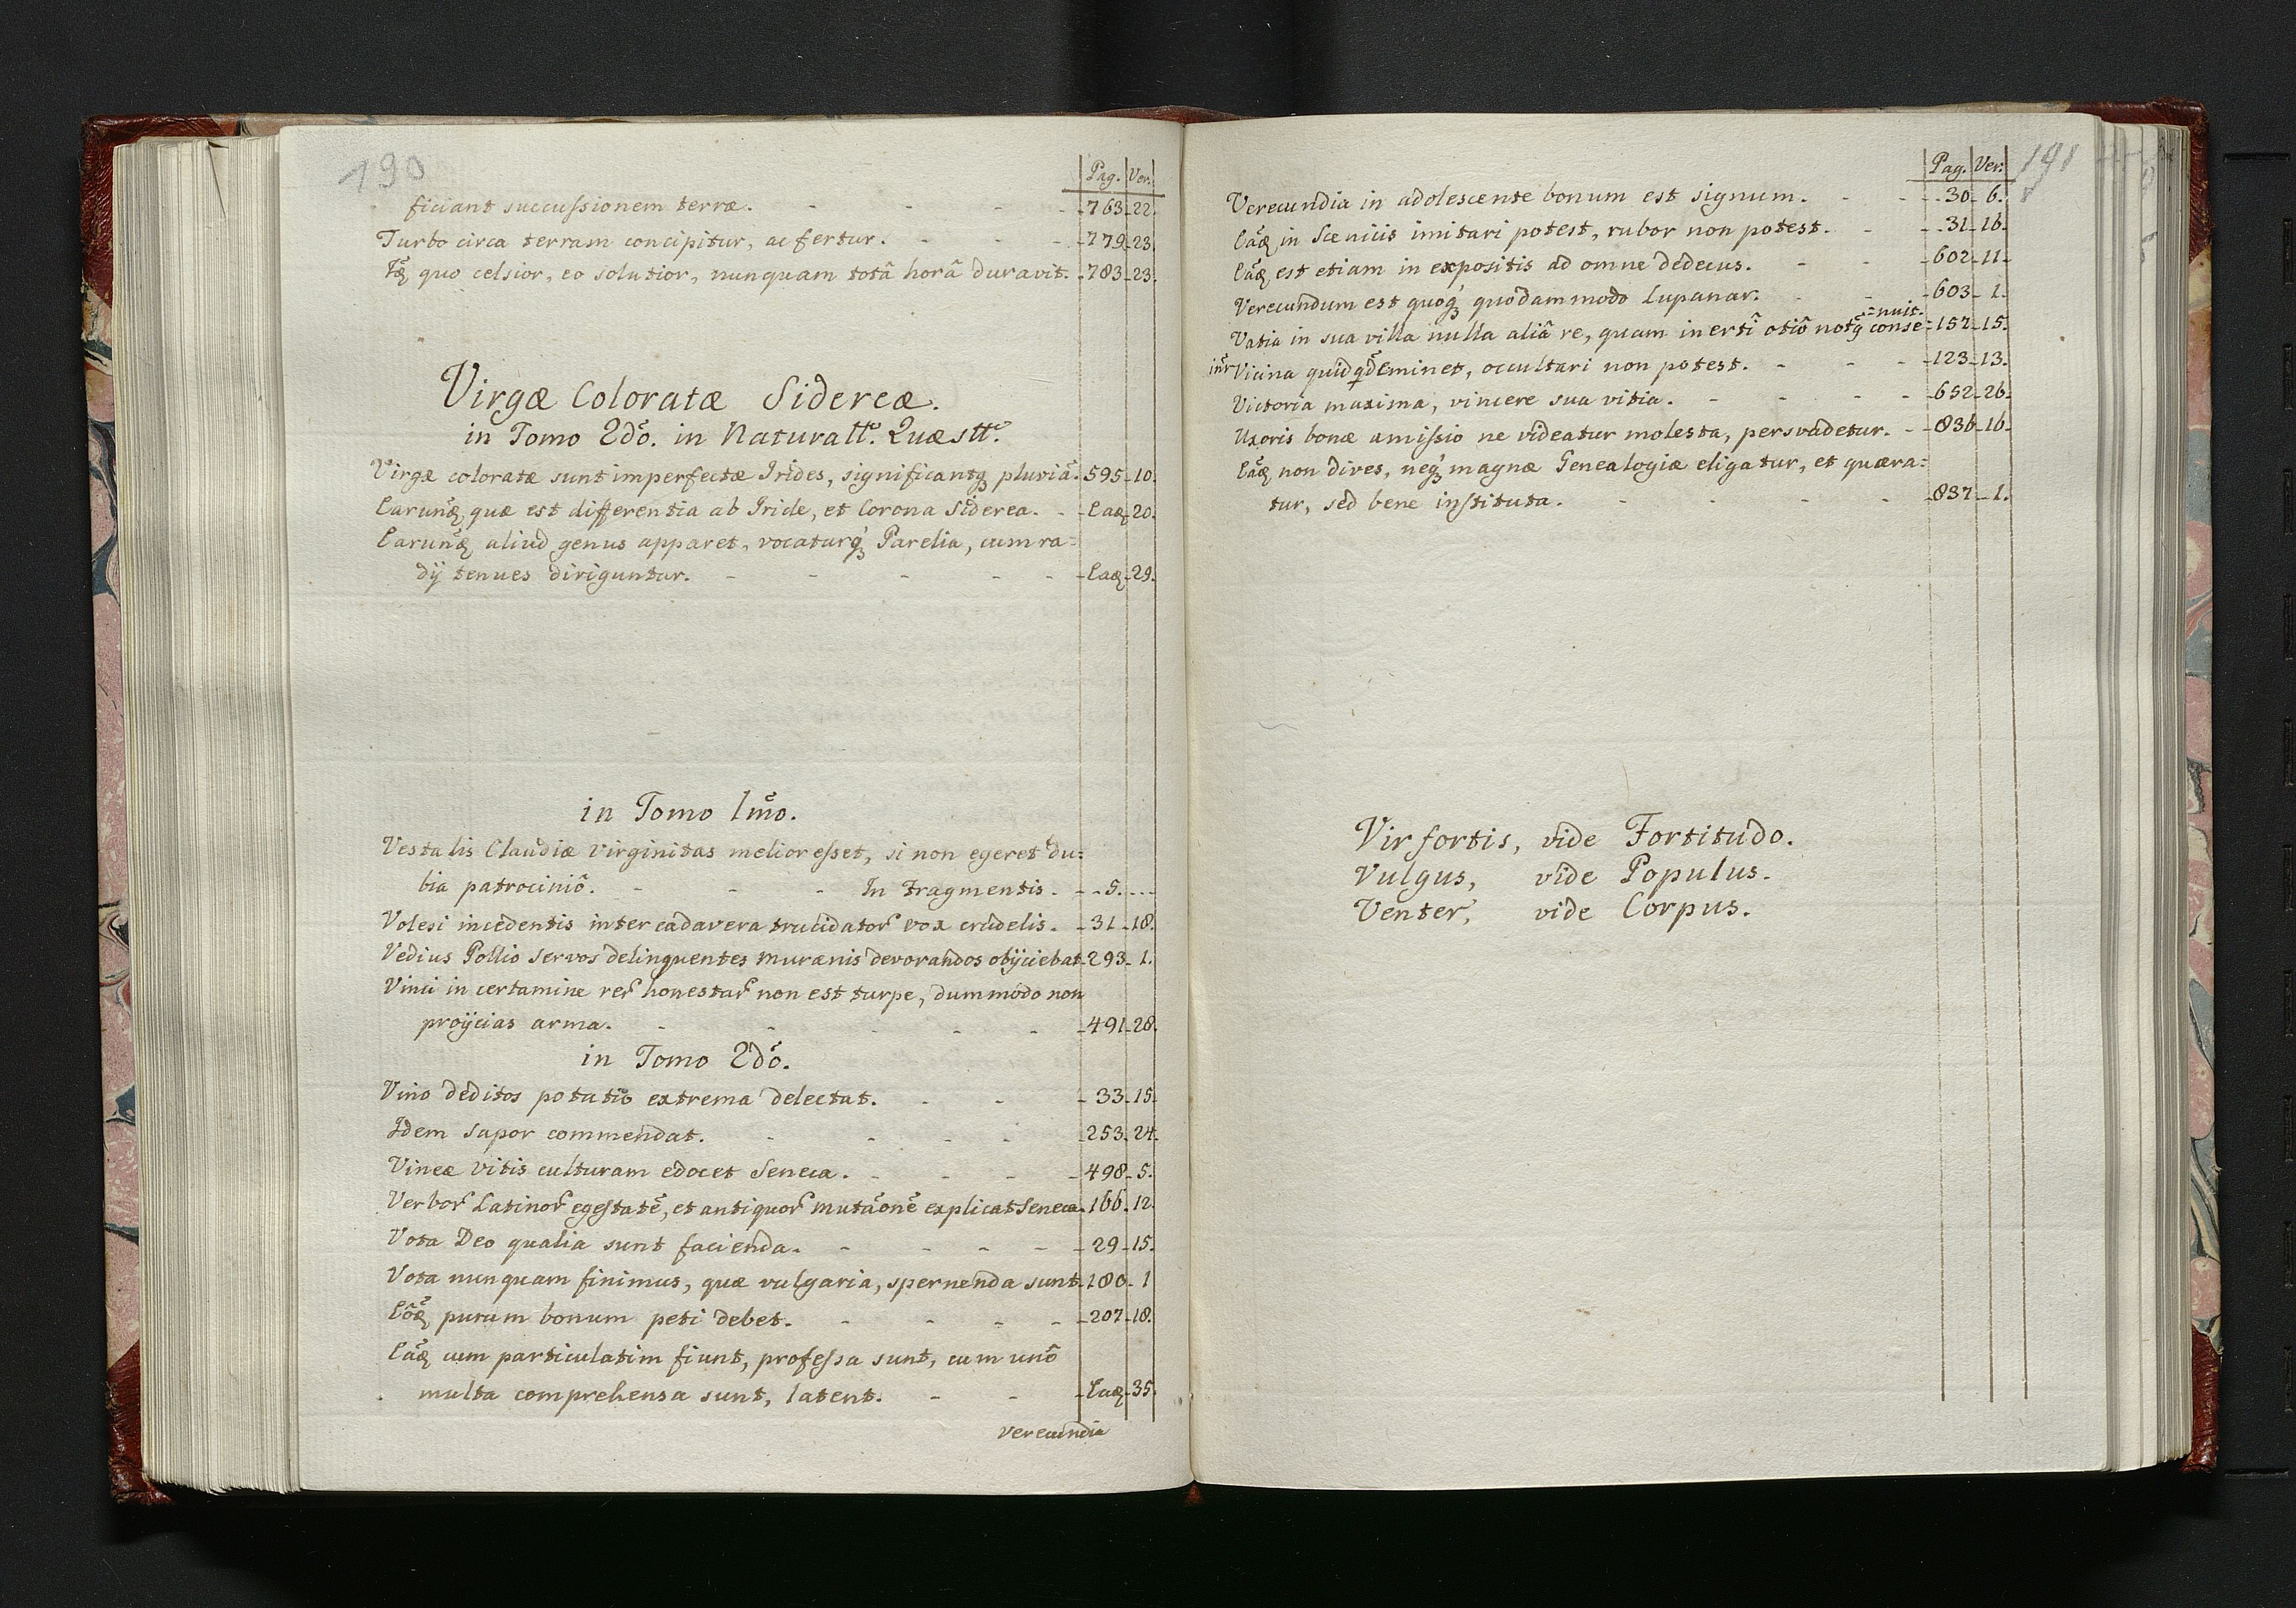 190
Pag. Ver.
ficiant succussionem terræ. - - - - 763 - 22.
Turbo circa terram concipitur, ac fertur. - - - 779 - 23.
quo celsior, eo solutior, nunquam totâ horâ duravit. - 783 - 23.
Virgæ Coloratæ Sidereæ.
in Tomo 2dõ. in Naturall: Quæstt:
Virgæ coloratæ sunt imperfectæ Irides, significantq; pluviã. 595 - 10.
Earunđ quæ est differentia ab Iride, et Corona Siderea. - Eađ - 20.
Earunđ aliud genus apparet, vocaturq; Parelia, cum ra=
dÿ tenues diriguntur. - - - - - Eađ - 29.
in Tomo 1mõ.
Vestalis Claudiæ Virginitas melior esset, si non egeret du=
bia patrociniô. - - - In Fragmentis. - - 5. ...
Volesi incedentis inter cadavera trucidator̃ vox crudelis. - 31 - 18.
Vedius Pollio Servos delinquentes Murænis devorandos obÿciebat - 293 - 1.
Vinci in certamine rer̃ honestar̃ non est turpe, dummodo non
proÿcias arma. - - - - - 491 - 28.
in Tomo 2dõ.
Vino deditos potatiõ extrema delectat. - - - 33 - 15.
Idem sapor commendat. - - - - 253 - 24.
Vineæ Vitis culturam edocet Seneca. - - - - 498 - 5.
Verbor̃ Latinor̃ egestatẽ, et antiquor̃ mutãonẽ explicat Seneca - 166 - 12.
Vota Deo qualia sunt facienda. - - - - - 29 - 15.
Vota nunquam finimus, quæ vulgaria, spernenda sunt - 180 - 1
Eõđ purum bonum peti debet. - - - - 207 - 18.
Eãđ cum particulatim fiunt, professa sunt, cum unô
multa comprehensa sunt, latent. - - - Eađ - 35.
Verecundia
191
Pag. Ver.
Verecundia in adolescente bonum est signum. - - - 30 - 6.
Eãđ in Scenicis imitari potest, rubor non potest. - - - 31 - 16.
Eãđ est etiam in expositis ad omne dedecus. - - - 602 - 11.
Verecundum est quoq; quodammodo Lupanar. - - 603 - 1.
=nuit.
Vatia in sua villa nulla aliâ re, quam inerti otiô conse= 152 - 15.
Vicina quid eminet, occultari non potest. - - - 123 - 13.
Victoria maxima, vincere sua vitia. - - - - 652 - 26.
Uxoris bonæ amissio ne videatur molesta, persvadetur. - - 836 - 16.
Eãđ non dives, neq; magnæ Genealogiæ eligatur, et quæra=
tur, sed bene instituta. - - - - 837 - 1.
Vir fortis, vide Fortitudo.
Vulgus, vide Populus.
Venter, vide Corpus.